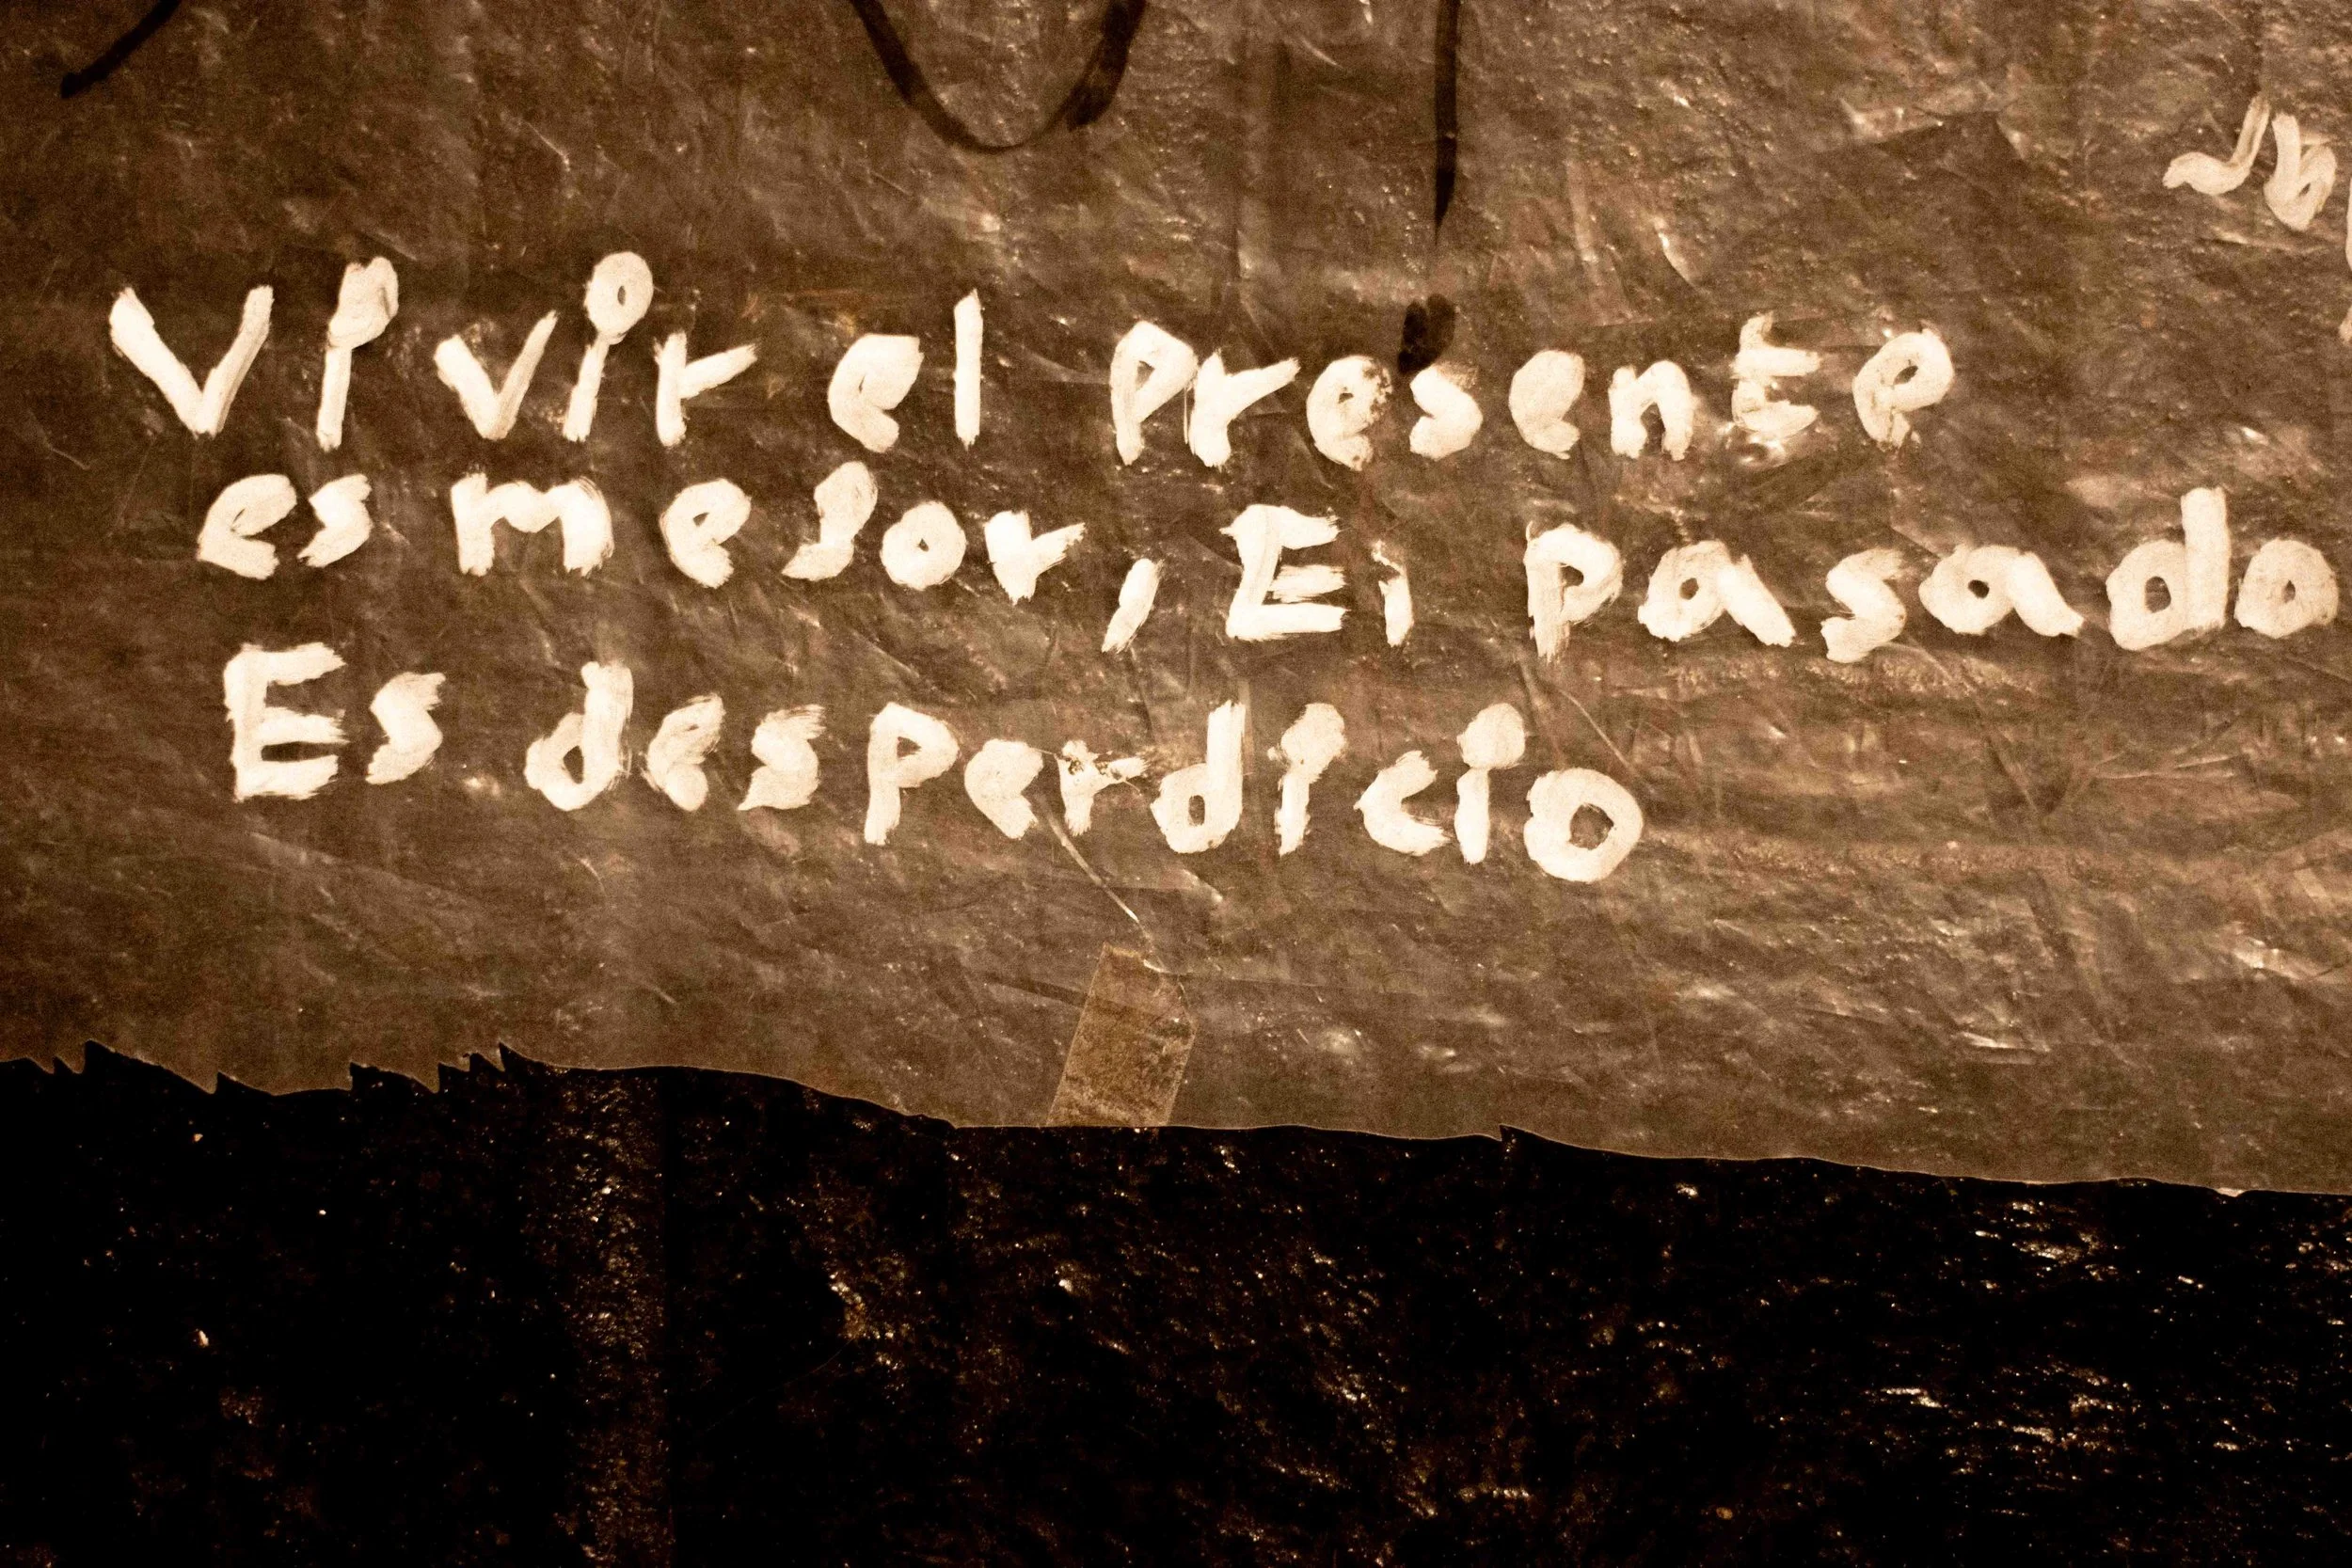 Vivir el presente
es mejor, El pasado
Es desperdicio